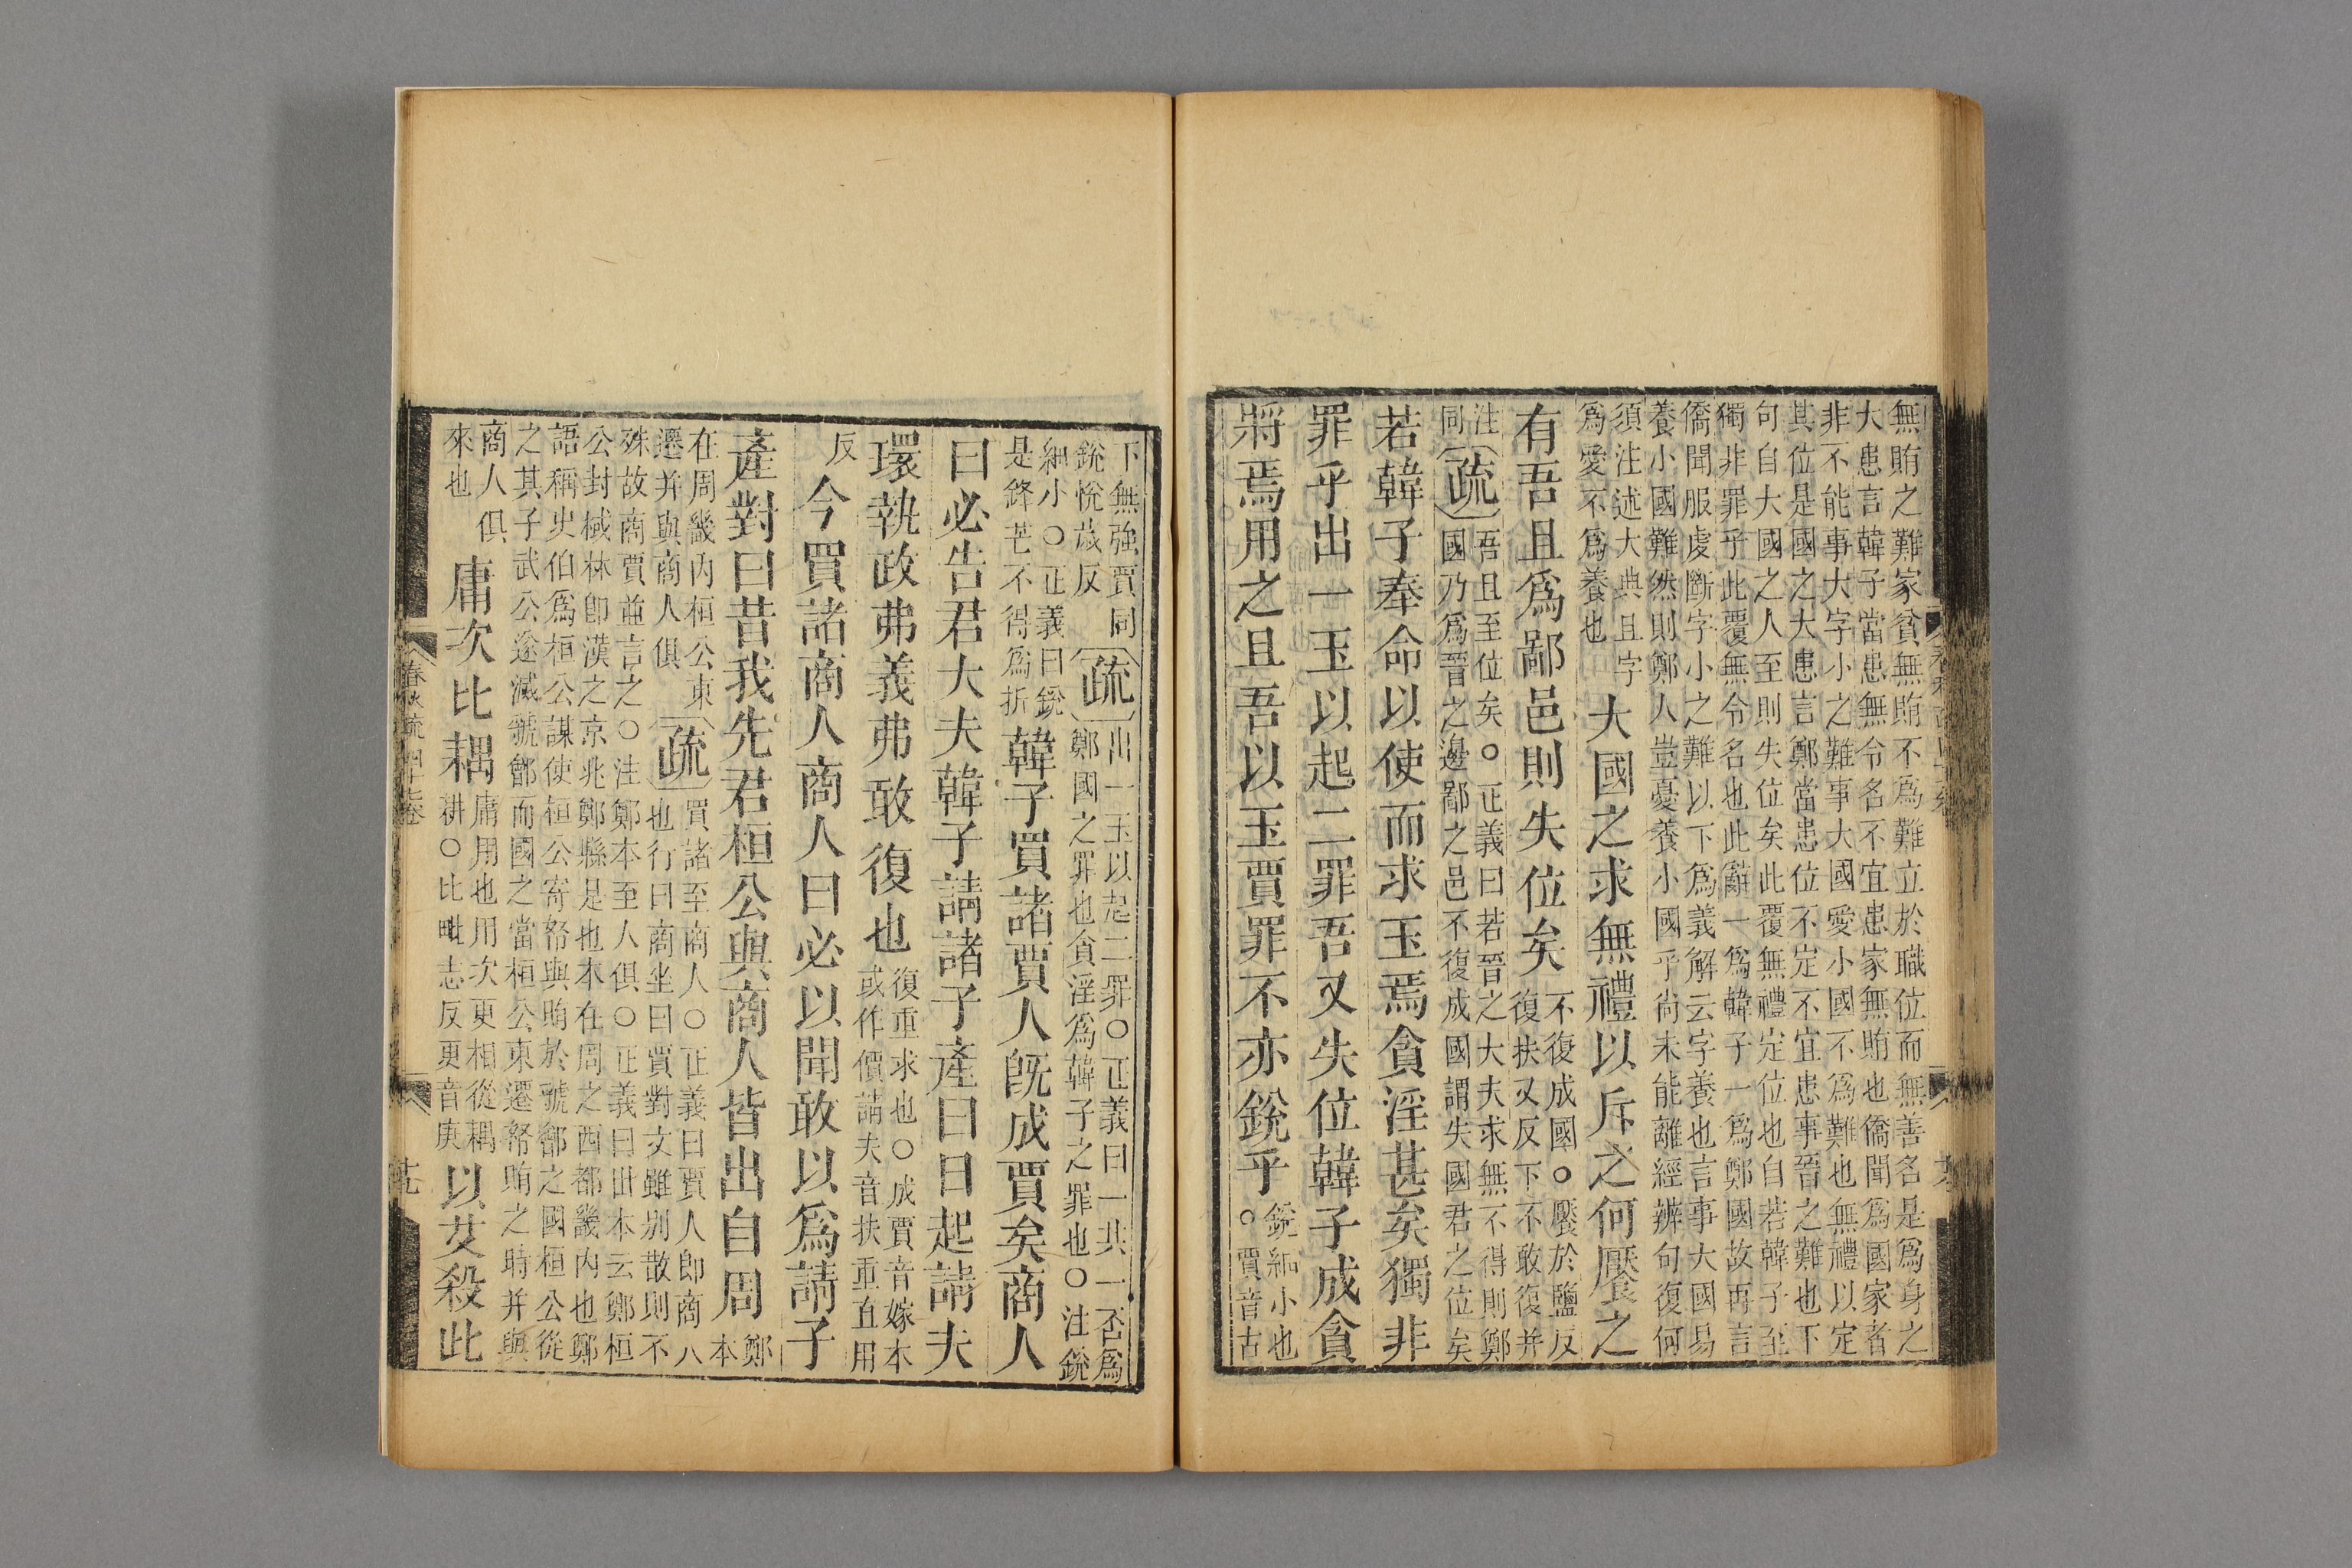 無賄之難家貧無賄不爲難立於職位而無善名是爲身之
大患言韓子當患無令名不宜患家無賄也僑聞爲國家者
非不能事大字小之難事大國愛小國不爲難也無禮以定
其位是國之大患言鄭當患位不定不宜患事晉之難也下
句自大國之人至則失位矣此覆無禮定位也自若韓子至
獨非罪乎此覆無令名也此辭一爲韓子一爲鄭國故再言
僑聞服虔斷字小之難以下爲義解云字養也言事大國易
養小國難然則鄭人豈憂養小國乎尚未能離經辨句復何
須注述大典且字
爲愛不爲養也
大國之求無禮以斥之何饜之
有吾且爲鄙邑則失位矣
不復成國○饜於鹽反
復扶又反下不敢復并
注
同
疏
吾且至位矣○正義曰若晉之大夫求無不得則鄭
國乃爲晉之邊鄙之邑不復成國謂失國君之位矣
若韓子奉命以使而求玉焉貪淫甚矣獨非
罪乎出一玉以起二罪吾又失位韓子成貪
將焉用之且吾以玉賈罪不亦銳乎
銳細小也
○賈音古
下無強賈同
銳悅歲反
疏
出一玉以起二罪○正義曰一共一否爲
鄭國之罪也貪淫爲韓子之罪也○注銳
細小○正義曰銳
是鋒芒不得爲折
韓子買諸賈人旣成賈矣商人
曰必告君大夫韓子請諸子產曰日起請夫
環執政弗義弗敢復也
復重求也○成賈音嫁本
或作價請夫音扶重直用
反
今買諸商人商人曰必以聞敢以爲請子
產對曰昔我先君桓公與商人皆出自周
鄭
本
在周畿內桓公東
遷并與商人俱
疏
買諸至商人○正義曰賈人卽商人
也行曰商坐曰賈對文雖别散則不
殊故商賈並言之○注鄭本至人俱○正義曰世本云鄭桓
公封棫林卽漢之京兆鄭縣是也本在周之西都畿內也鄭
語稱史伯爲桓公謀使桓公寄帑與賄於虢鄶之國桓公從
之其子武公遂滅虢鄶而國之當桓公東遷帑賄之時并與
商人俱
來也
庸次比耦
庸用也用次更相從耦
耕○比毗志反更音庚
以艾殺此
春秋疏四十七卷
十九